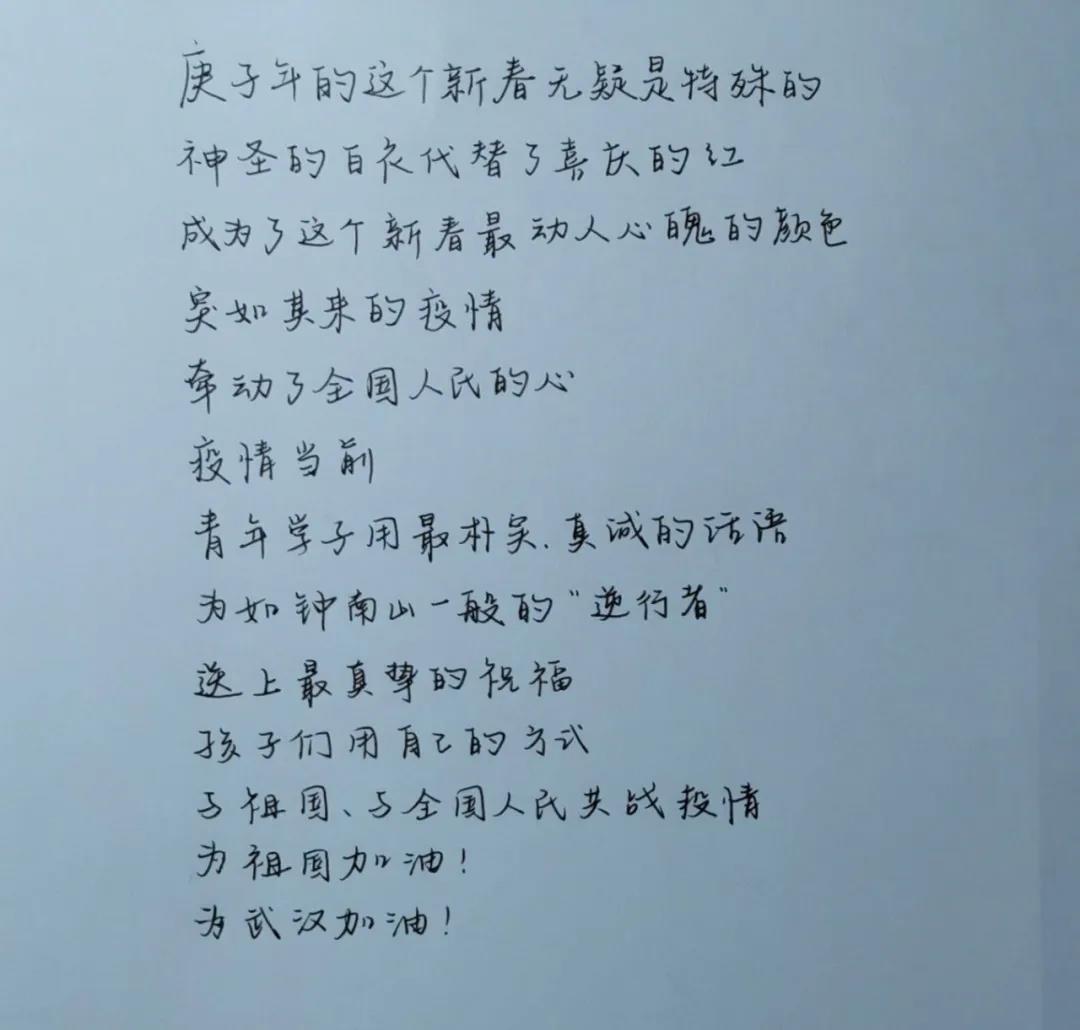 庚子年的这个新春无疑是特殊的
神圣的白衣代替了喜庆的红
成为了这个新春最动人心魄的颜色
突如其来的疫情
牵动了全国人民的心
疫情当前
青年学子用最朴实、真诚的话语
为如钟南山一般的“逆行者”
送上最真挚的祝福
孩子们用自己的方式
与祖国、与全国人民共战疫情
为祖国加油！
为武汉加油！